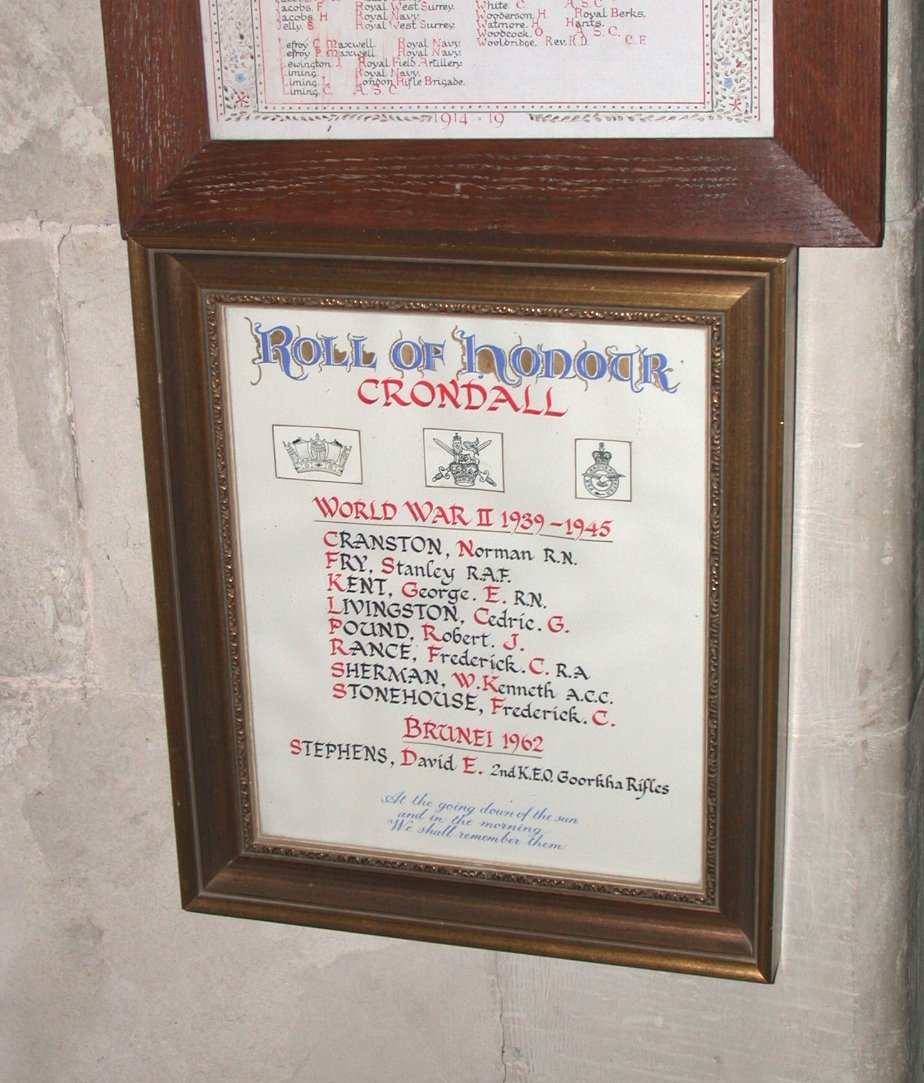 Jacobs. F Royal West Surrey.
Jacobs. H Royal Navy.
Jelly. S Royal West Surrey.
Lefroy C. Maxwell. Royal Navy.
Lefroy P. Maxwell. Royal Navy.
Lewington. J Royal Field Artillery.
Liming. Royal Navy.
Liming. L London Rifle Brigade.
Liming. C. A. S. C.
White C A. S. C.
Wooderson. H Royal Berks.
Watmore. A Hants.
Woodcock. O A. S. C.
Wooldridge. Rev. R D C. F.
1914 - 19
ROLL OF HONOUR
CRONDALL
WORLD WAR II 1939-1945
CRANSTON, Norman R.N.
FRY, Stanley R.A.F.
KENT, George. E. R.N.
LIVINGSTON, Cedric. G.
POUND, Robert. J.
RANCE, Frederick. C. R.A
SHERMAN, W. Kenneth A.C.C.
STONEHOUSE, Frederick. C.
BRUNEI 1962
STEPHENS, David E. 2nd K.E.O. Goorkha Rifles
At the going down of the sun
and in the morning
We shall remember them